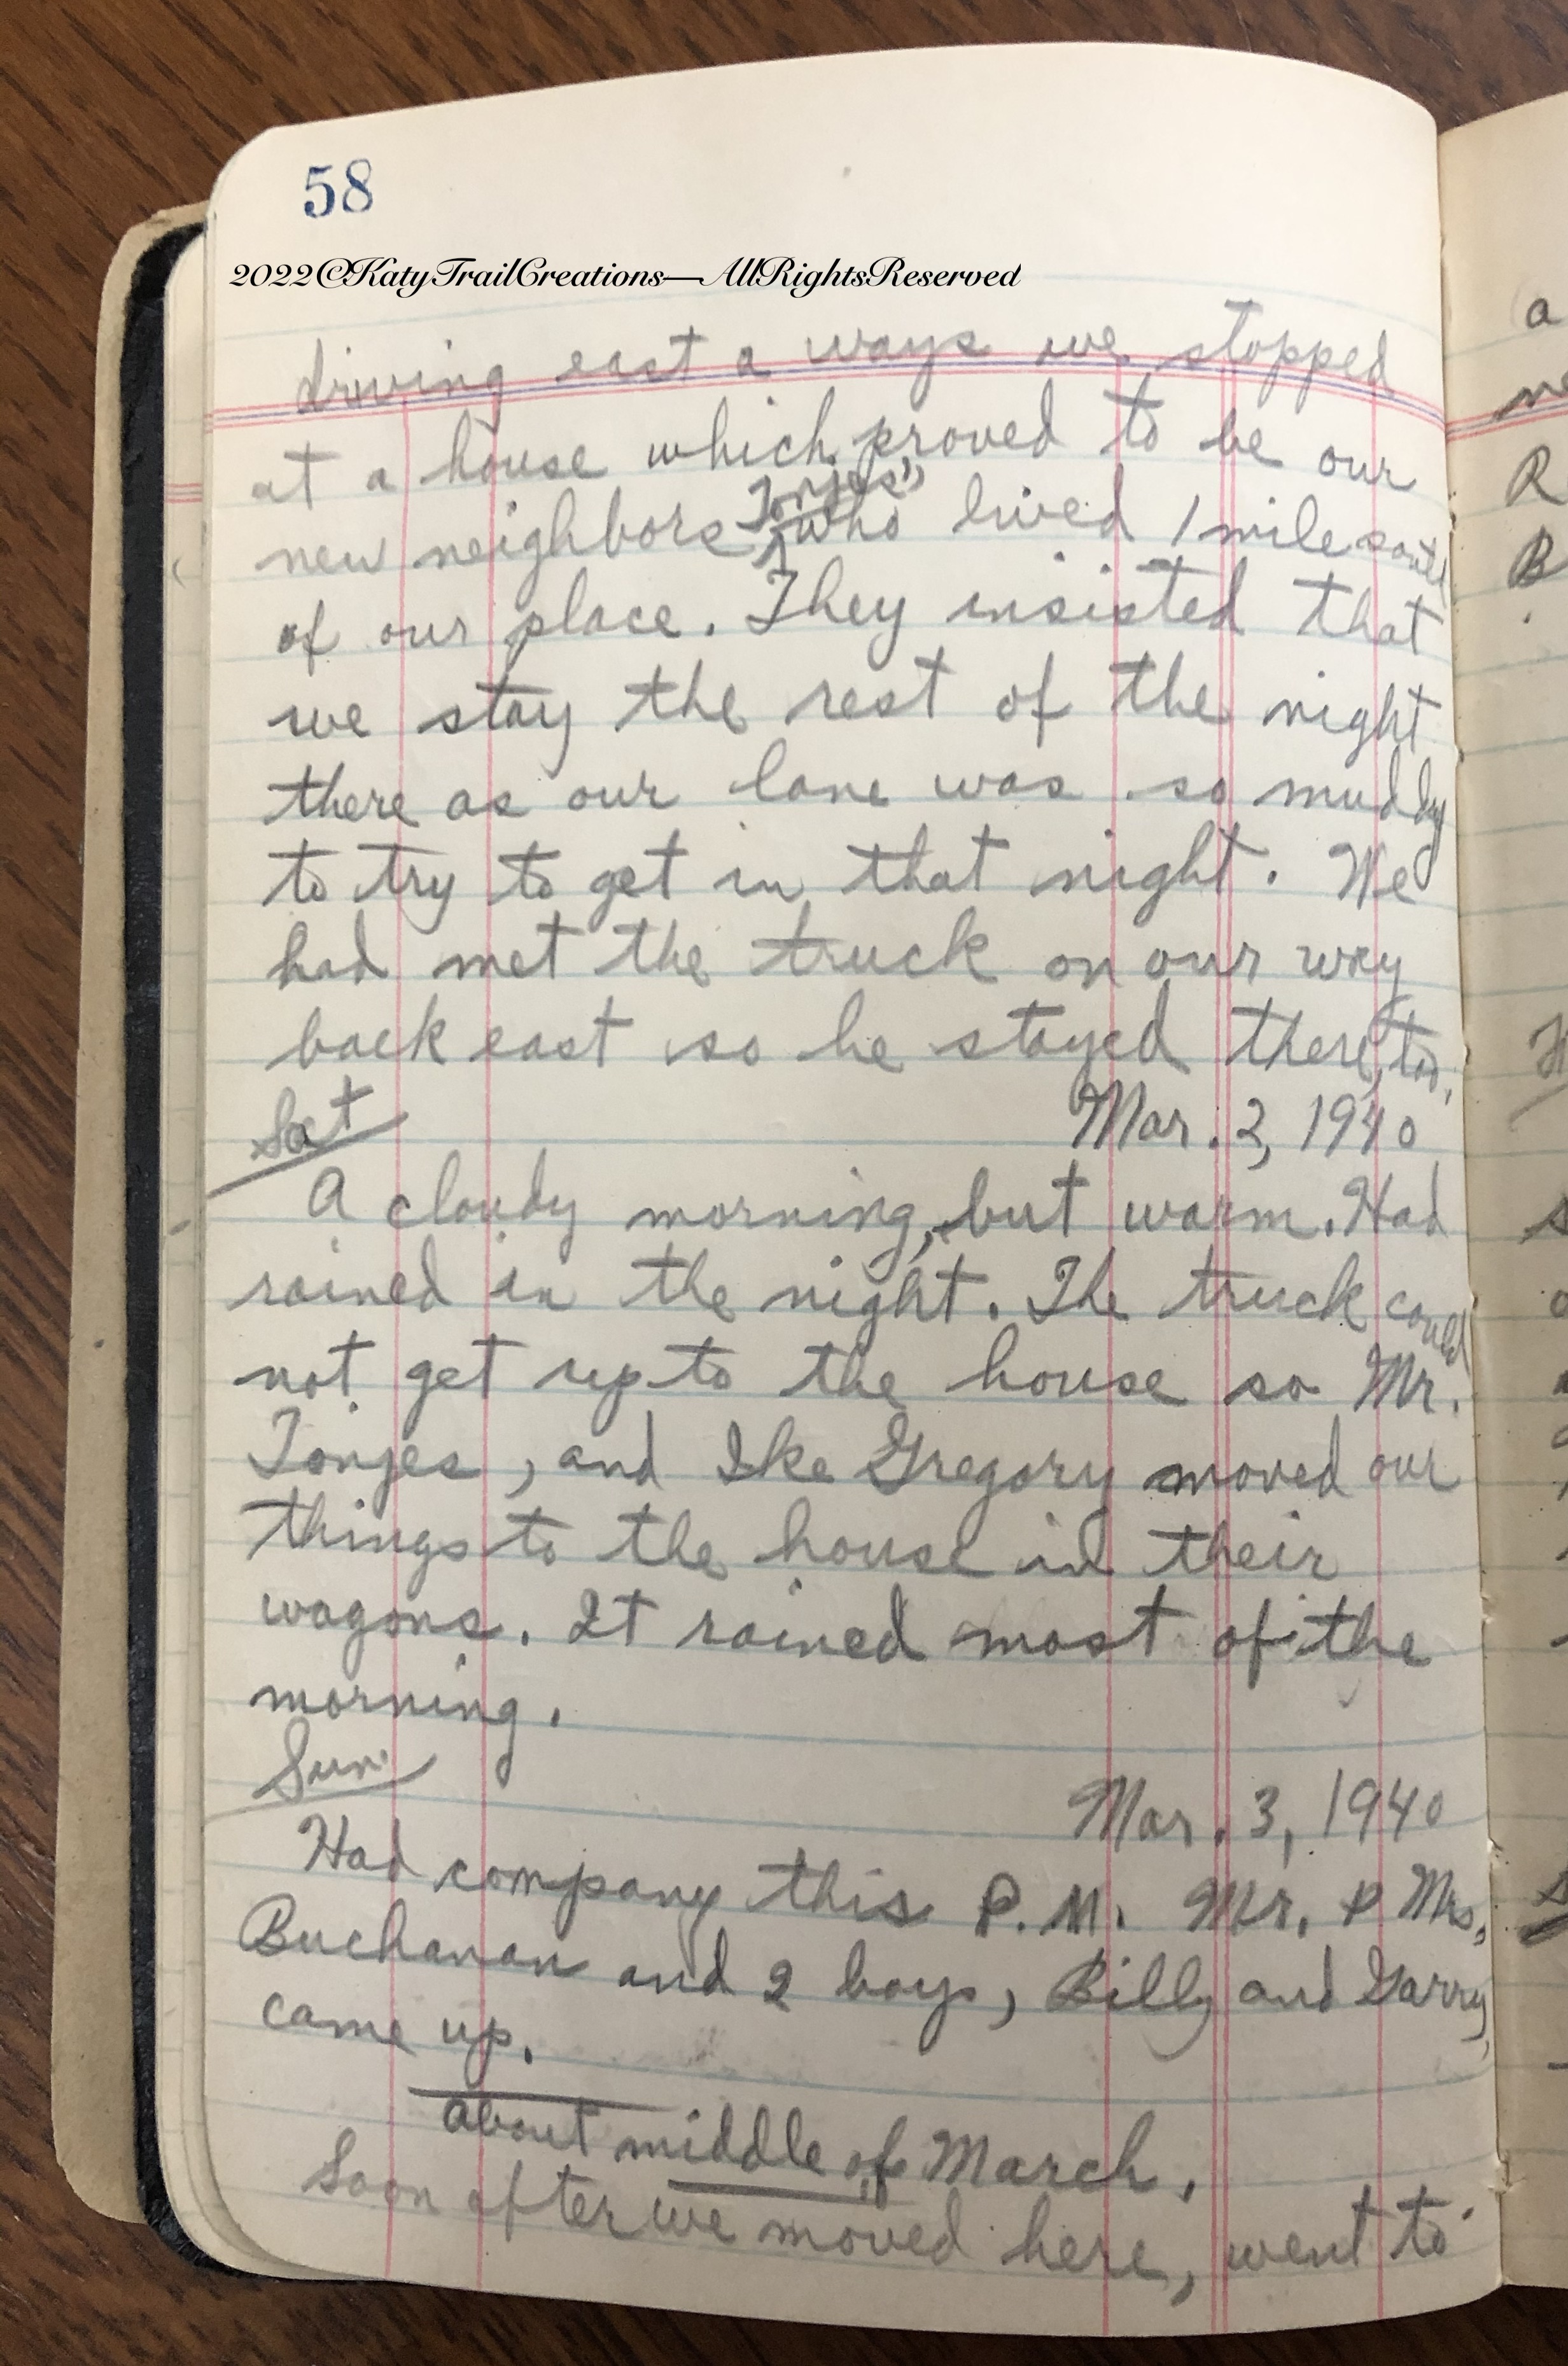 58
2022©KatyTrailCreations—AllRightsReserved
driving east a ways we stopped
at a house which proved to be our
new neighbors Tonjes', who lived 1 mile south
of our place. They insisted that
we stay the rest of the night
there as our lane was so muddy
to try to get in that night. We
had met the truck on our way
back east so he stayed there, too.
Sat Mar. 2, 1940
A cloudy morning, but warm. Had
rained in the night. The truck could
not get up to the house so Mr.
Tonjes, and Ike Gregory moved our
things to the house in their
wagons. It rained most of the
morning.
Sun. Mar. 3, 1940
Had company this P.M. Mr. & Mrs.
Buchanan and 2 boys, Billy and Garry,
came up.
about middle of March.
Soon after we moved here, went to
a
ne
R
B